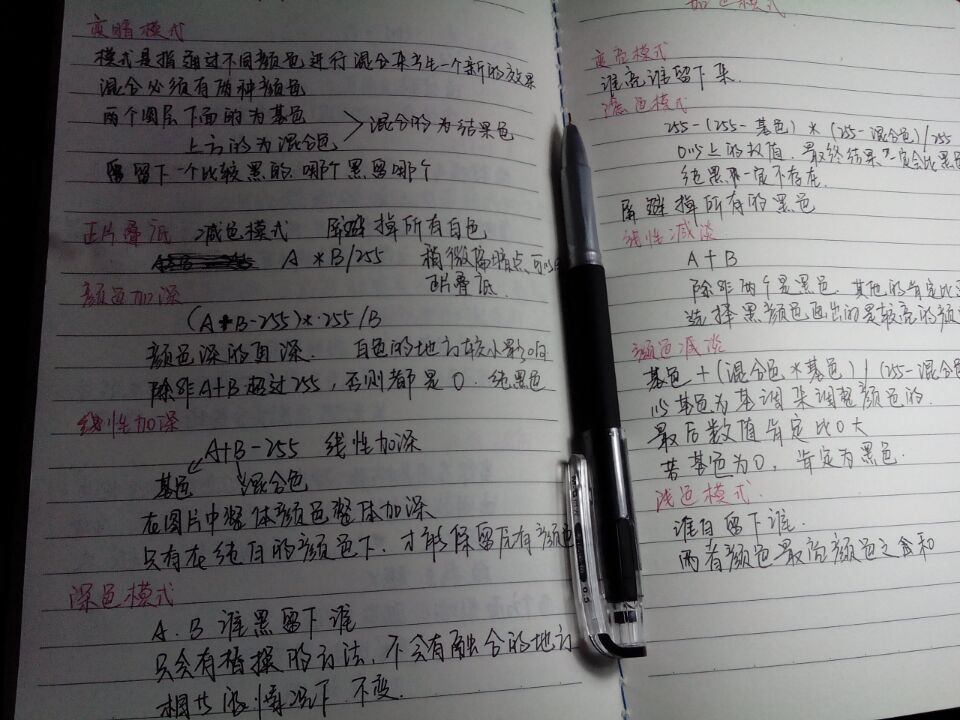 变暗模式
模式是指通过不同颜色进行混合来产生一个新的效果
混合必须有两种颜色
两个图层下面的为基色
上方的为混合色
>混合的为结果色
留下一个比较黑的.哪个黑留哪个
正片叠底 减色模式 屏蔽掉所有白色
A * B/255 稍微偏暗点.可以
正片叠底.
颜色加深
(A+B-255)*255/B
颜色深的更深. 白色的地方较小影响
除非A+B超过255,否则都是0.纯黑色
线性加深
A+B-255 线性加深
基色 混合色
在图片中整体颜色整体加深
只有在纯白的颜色下.才能保留原有颜色
深色模式
A.B谁黑留下谁
只会有替换的方法.不会有融合的地方
相 情况下 不变.
加色模式
变亮模式
谁亮谁留下来.
滤色模式
255-(255-基色)*(255-混合色)/255
0以上的数值.最终结果一定会比黑色
纯黑 一定不存在.
屏蔽掉所有的黑色
线性减淡
A+B
除非两个是黑色.其他的肯定比
选择黑颜色画出的是较亮的颜
颜色减淡
基色+(混合色*基色)/(255-混合
以基色为基调来调整颜色的.
最后数值肯定比0大
若基色为0,肯定为黑色.
浅色模式.
谁白留下谁.
两者颜色最高颜色之 和